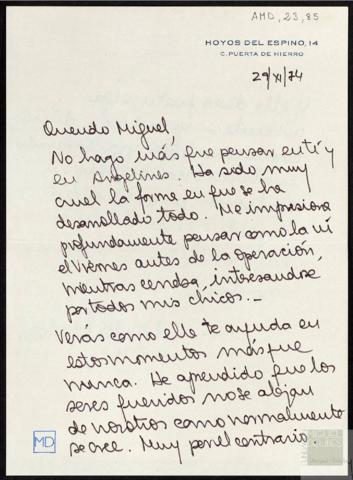 AMD, 23, 85
HOYOS DEL ESPINO, 14
C. PUERTA DE HIERRO
29/XI/74
Querido Miguel,
No hago más que pensar en tí y
en Angelines. Ha sido muy
cruel la forma en que se ha
desarrollado todo. Me impresiona
profundamente pensar como la ví
el Viernes antes de la operación,
mientras cenaba, interesandose
por todos mis chicos._
Verás como ella te ayuda en
estos momentos más que
nunca. He aprendido que los
seres queridos no se alejan
de nosotros como normalmente
se cree. Muy por el contrario.
MD